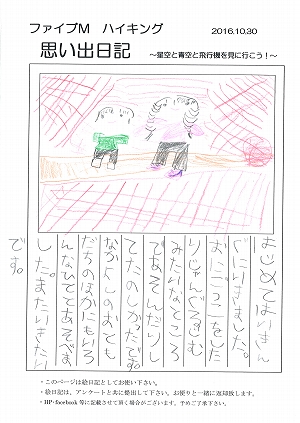 ファイブM　ハイキング
2016.10.30
思い出日記
～星空と青空と飛行機を見に行こう！～
はじめてはいきん
ぐにいきました。
おにごっこをした
りじゃんぐるじむ
みたいなところ
であそんだりし
てたのしかったです。
なかよしのおとも
だちのほかにもいろ
んなひとであそびま
した。またいきたい
です。
・このページは絵日記としてお使い下さい。
・絵日記は、アンケートと共に提出して下さい。お便りと一緒に返却致します。
・HP・facebook 等に記載させて頂く場合がございます。予めご了承下さい。